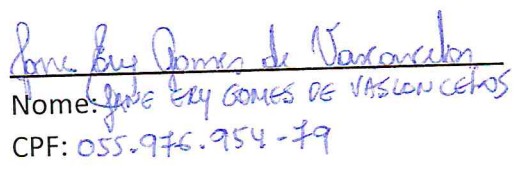 Jane Ery Gomes de Vasconcelos
Nome: JANE ERY GOMES DE VASCONCELOS
CPF: 055.976.954-79